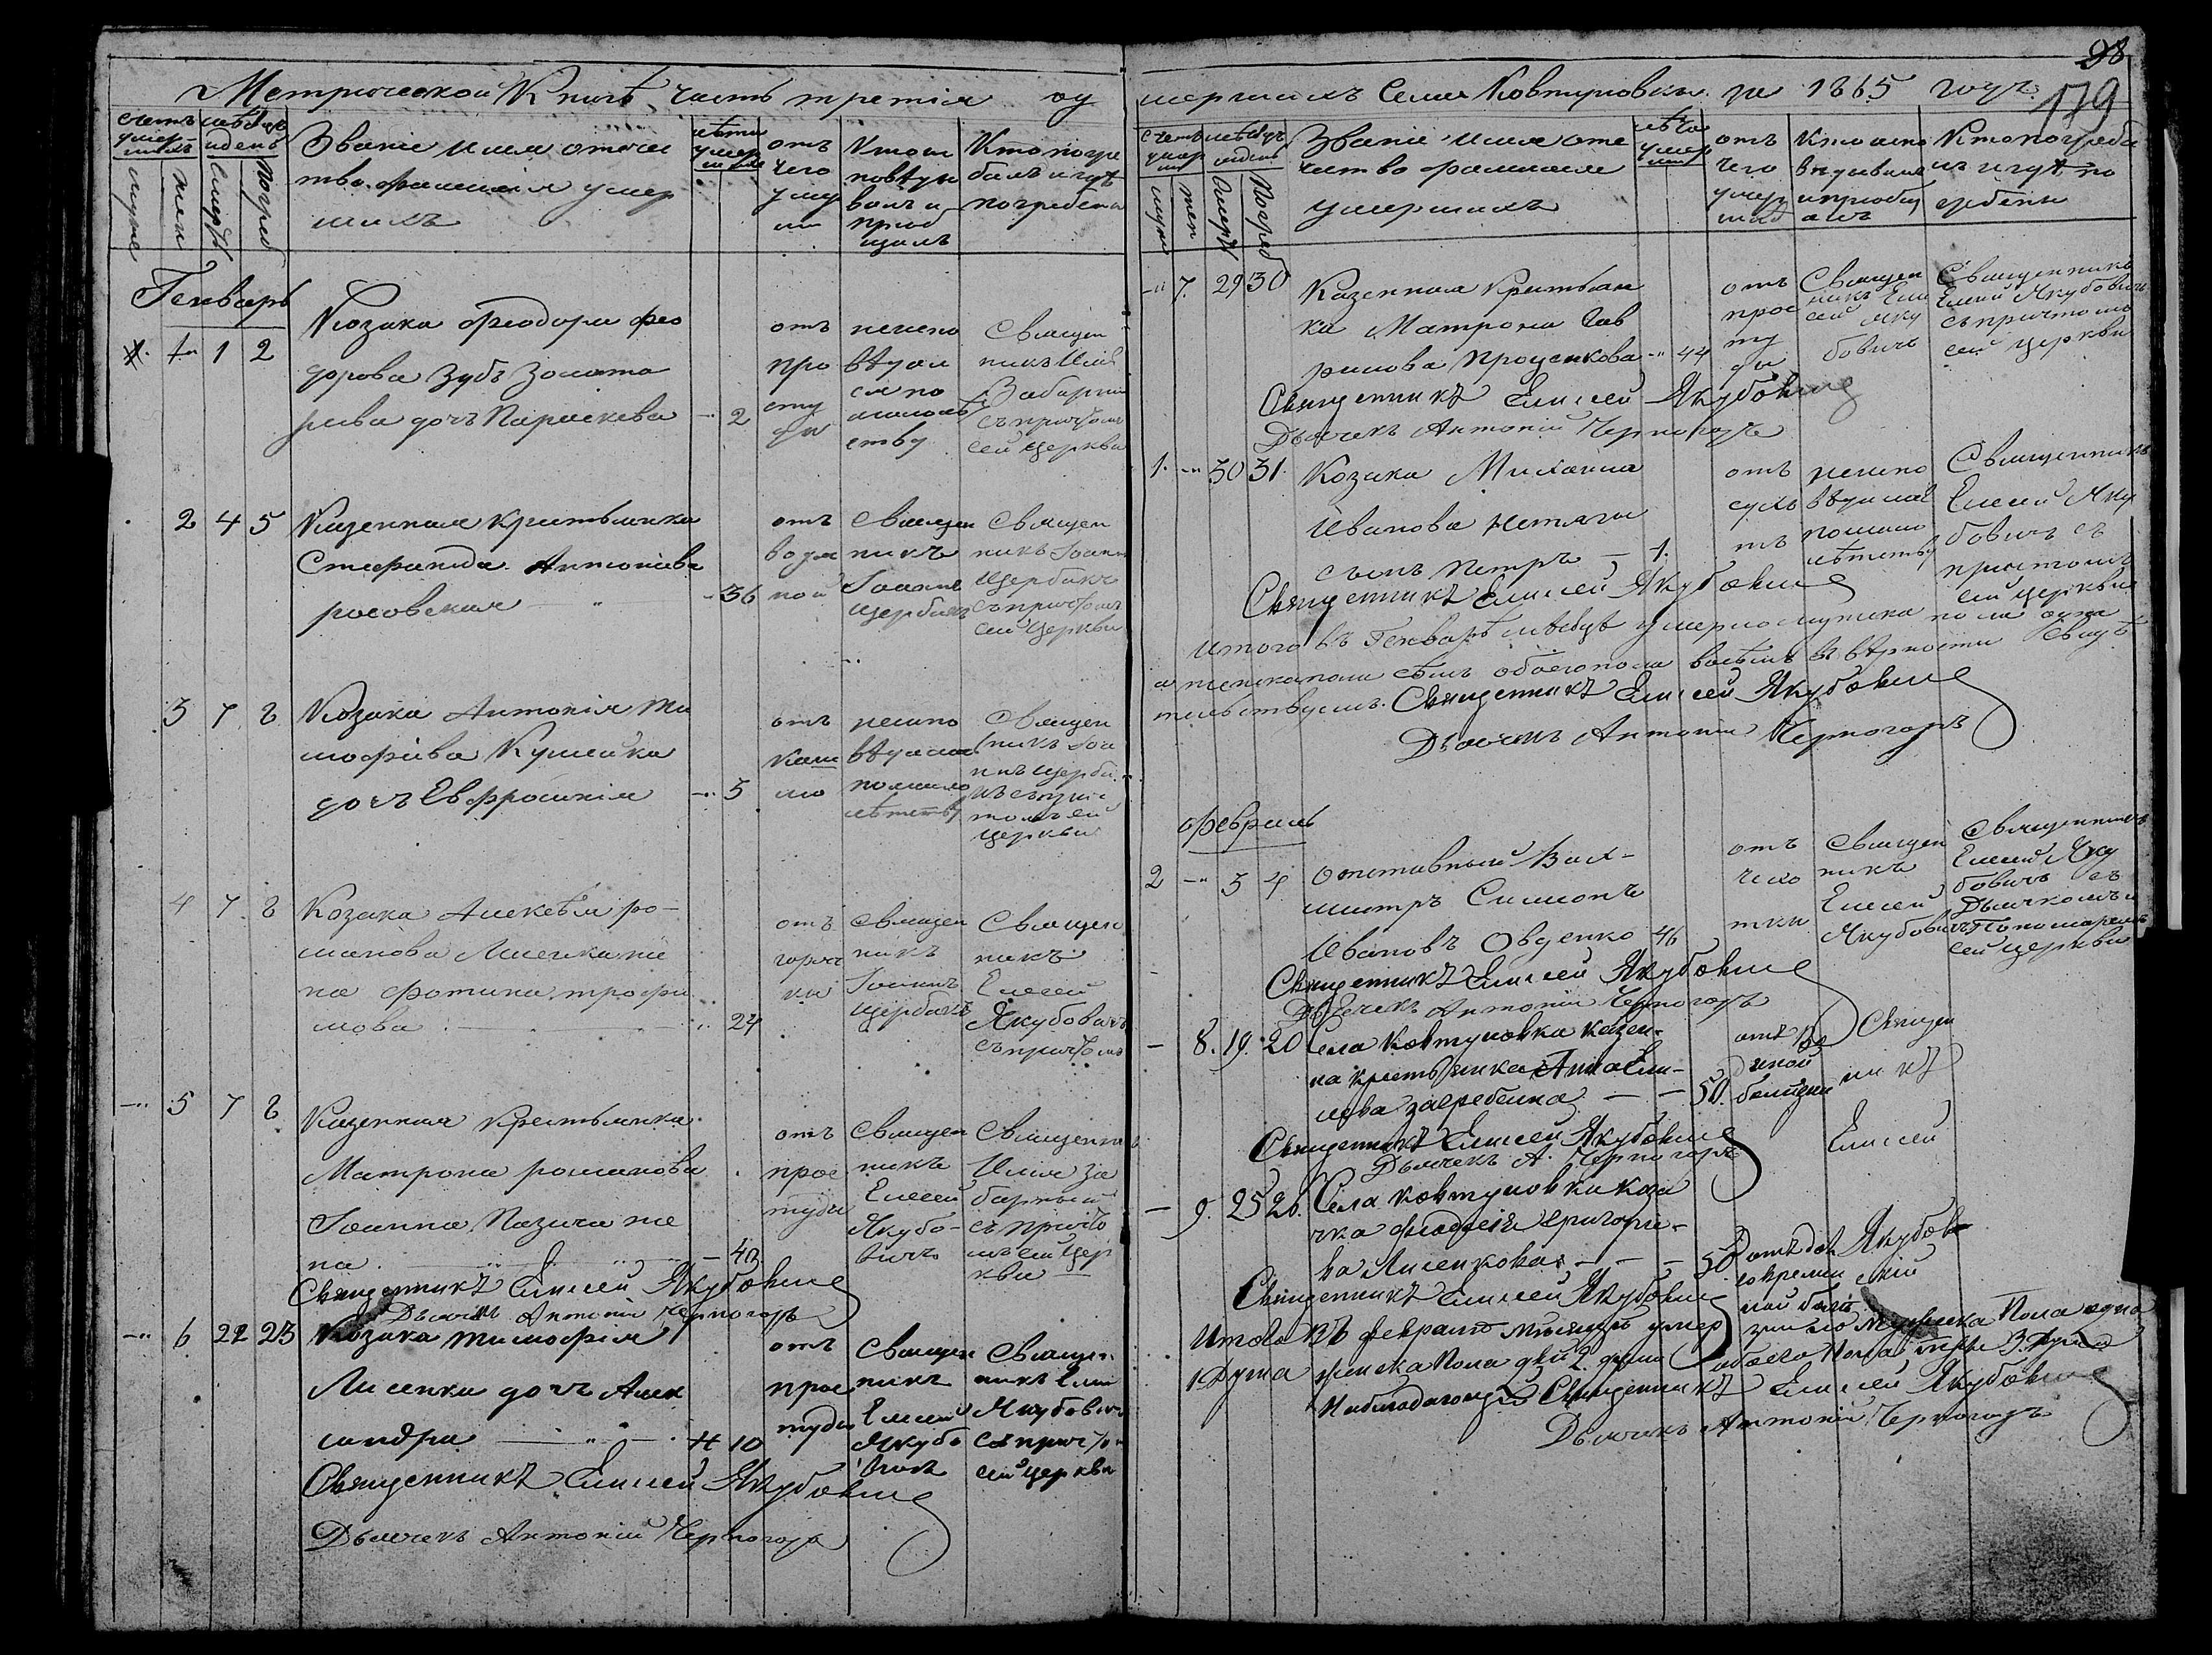 98
179
Метрической Книги часть третія оу
мершихъ Села Ковтуновки за 1865 годъ
Счетъ умер-шихъ
мужс
жен
мѣсяцъ и день
Смерти
Погреб
Званіе имя отчес
тво фамилія умер
шихъ
лѣта умершаго
отъ
чего
умер
ли
Кто ис
повѣды
валъ и
приоб
щалъ
Кто погре
балъ и гдѣ
погребены
Генварь
1 1 2
Козака Феодора Фео
дорова Зубъ Золота
рева дочь Параскева 2
отъ
про
сту
ды
неиспо
вѣдан
ся по
малолѣт
ству
Священ
никъ Илія
Забарний
съ причтомъ
сей церкви
2 4 5
Казенная крестьянка
Стефанида Антоніева
росовская 36
отъ
водя
ной
Священ
никъ
Іоаннъ
Щербакъ
Священ
никъ Іоаннъ
Щербакъ
съ причтомъ
сей Церкви
3 7 8
Козака Антонія Ти
мофіева Кулика
дочь Евфросинія 3
отъ
каш
лю
неиспо
вѣдалась
помало
лѣтству
Священ
никъ Іоа
ннъ Щерба
къ съ прич
томъ сей
Церкви
4 7 8
Козака Алексѣя Ро-
манова Лисенка же
на Фотина Трофи
мова 24
отъ
горяч
ки
Священ
никъ
Іоаннъ
Щербакъ
Священ
никъ
Елисей
Якубовичъ
съ причтомъ
5 7 8
Казенная крестьянка
Матрона романова
Іоанна Назича же
на 42
отъ
прос
туды
Священ
никъ
Елисей
Якубо-
вичъ
Священникъ
Илія За
барный
съ причто
мъ сей Цер
кви
Священникъ Елисей Якубовичъ
Дьячекъ Антоній Черногоръ
6 22 23
Козака Тимофія
Лисенка дочь Алек
сандра 10
отъ
прос
туды
Священ
никъ
Елисей
Якубо
вичъ
Священ
никъ Ели
Якубовичъ
съ причтом
сей церкви
Священникъ Елисей Якубовичъ
Дьячекъ Антоній Черногоръ
7 29 30
Казенная Крестьян
ка Матрона Гав
рилова Проценкова 44
отъ
прос
ту
ды
Священ
никъ Ели
сей Яку
бовичъ
Священникъ
Елисей Якубовичъ
съ причтомъ
сей церкви
Священникъ Елисей Якубовичъ
Дьячекъ Антоній Черногоръ
1 30 31
Козака Михаила
Иванова Нетяги
сынъ Петръ 1
отъ
сухо
тъ
неиспо
вѣдалась
помало
лѣтству
Священникъ
Елисей Яку
бовичъ съ
причтомъ
сей церкви
Священникъ Елисей Якубовичъ
Итого въ Генварѣ мѣсяцѣ умерло мужска пола одна
а женска пола семь обоего пола восемь въ вѣрности свидѣ
тельствуемъ. Священникъ Елисей Якубовичъ
Дьячекъ Антоній Черногоръ
Февраль
2 3 4
Отставный Вах-
мистръ Симеонъ
Ивановъ Овденко 46
отъ
чехо
тки
Священ
никъ
Елисей
Якубовичъ
Священникъ
Елисей Яку
бовичъ съ
Дьячкомъ и
Пономаремъ
сей церкви
Священникъ Елисей Якубовичъ
Дьячекъ Антоній Черногоръ
8. 19. 20
Села Ковтуновка казен-
на крестьянка Анна
Загребелна 50
отъ во
дяной
болезни
Священ
никъ
Елисей
Якубов
скій
Священникъ Елисей Якубовичъ
Дьячекъ А. Черногоръ
9. 25 26.
Села Ковтуновки каза
чка Феодосія Григорие-
ва Лисенкова 50
Священникъ Елисей Якубовичъ
Итого въ февралѣ мѣсяцѣ умер ло мужеска пола одна
1 душа женска пола двѣ 2. души обоего пола три 3. души
Священникъ Елисей Якубовичъ
Дьячекъ Антоній Черногоръ